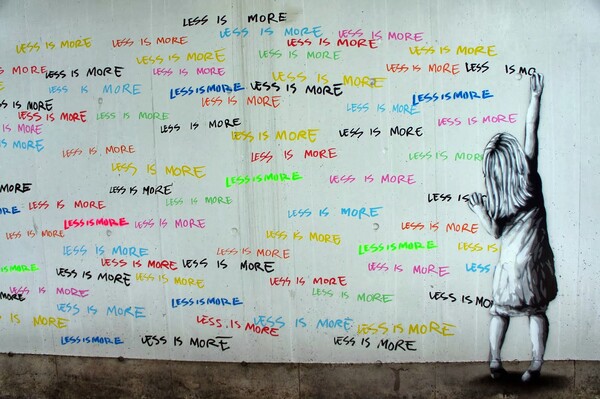 LESS IS MORE
LESS IS MORE
LESS IS MORE
LESS IS MORE
LESS IS MORE
LESS IS MORE
LESS IS MORE
LESS IS MORE
LESS IS MORE
MORE
LESS IS MORE
LESS IS MORE
LESS IS MORE
LESS IS MO
LESS IS MORE
LESS IS MORE
LESS IS MORE
LESS IS MORE
LESS IS MORE
IS MORE
LESS IS MORE
LESS IS MORE
LESS IS MORE
LESS IS MORE
LESS IS MORE
LESS IS MORE
IS MORE
LESS IS MORE
LESS IS MORE
IS MORE
LESS IS MORE
LESS IS MORE
LESS IS MOR
LESS IS MORE
LESS IS MORE
LESS IS MORE
MORE
LESS IS MORE
LESS IS
LESS IS MORE
LESS IS MORE
LESS IS MORE
LESS IS MORE
LESS IS MORE
LESS IS MORE
LESS IS MORE
LESS IS MORE
LESS IS MORE
LESS IS MORE
LESS IS
IS MORE
LESS IS MORE
LESS IS MORE
LESS IS MORE
LESS IS MORE
LESS
LESS IS MORE
LESS IS MORE
IS MORE
MORE
LESS IS MORE
LESS IS MO
LESS IS MORE
LESS IS MORE
IS MORE
LESS IS MORE
LESS IS MORE
LESS IS MORE
LESS IS MORE
LESS IS MORE
LESS IS MORE